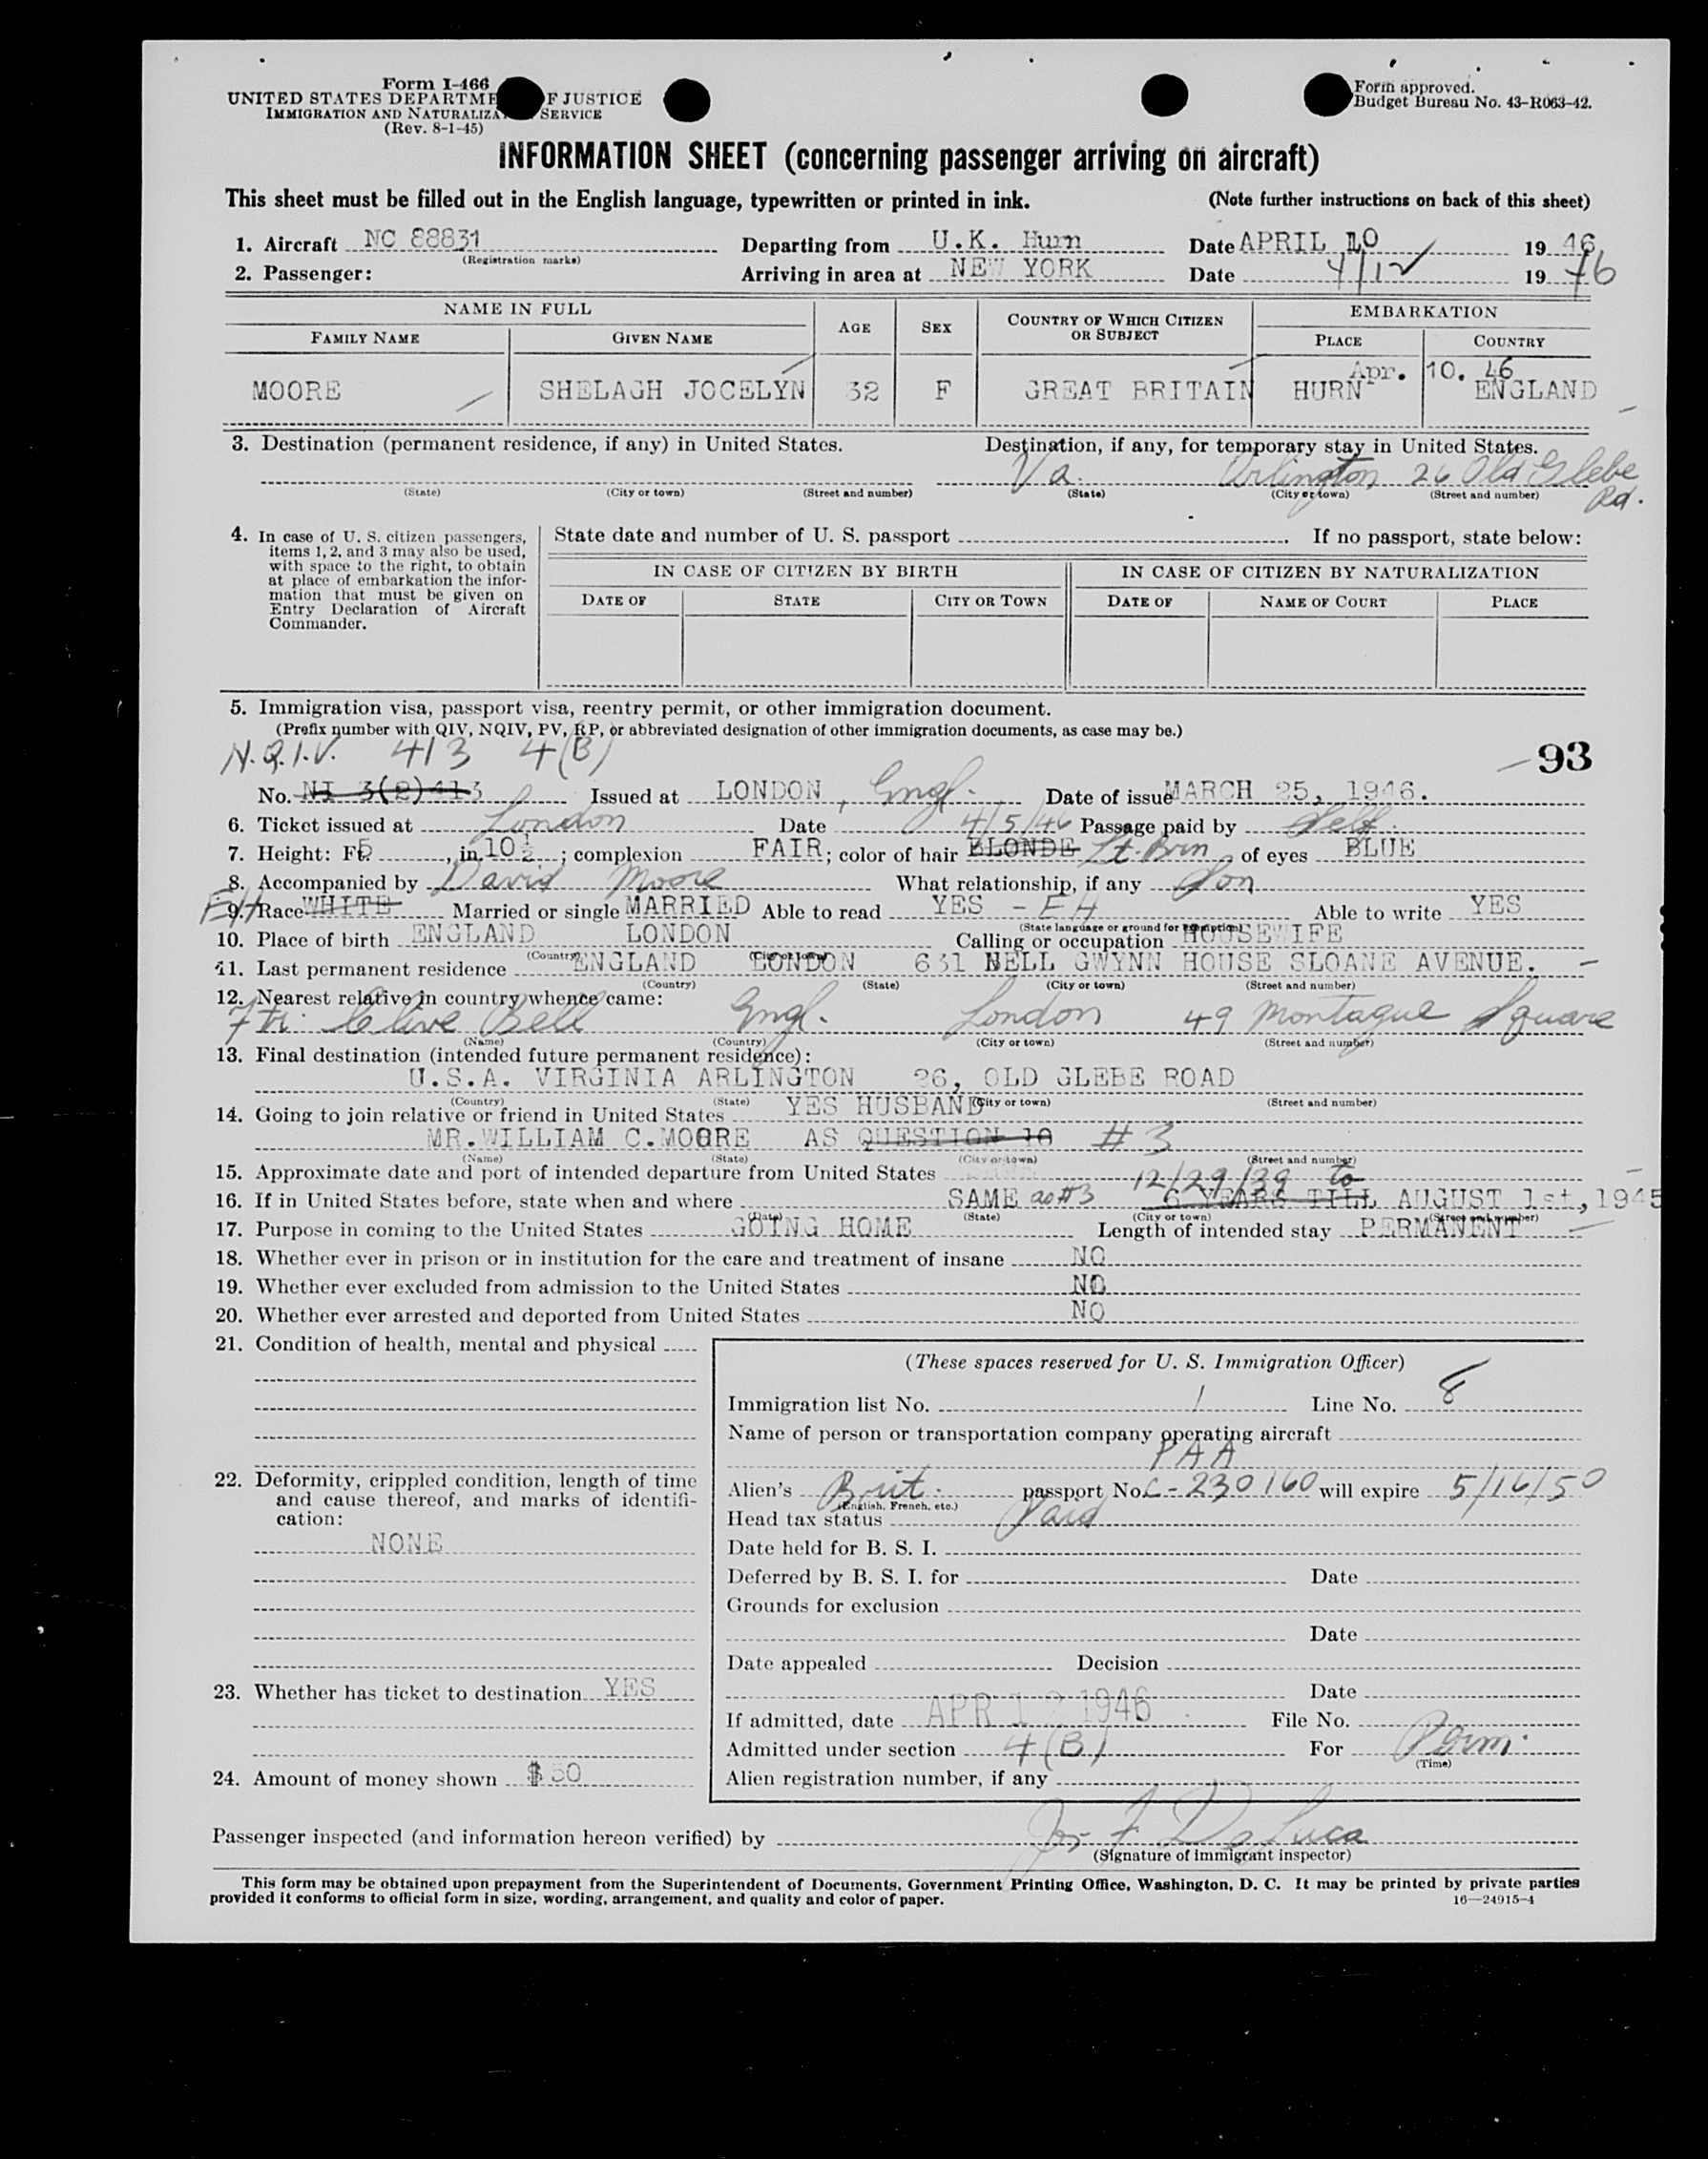 Form I-466
UNITED STATES DEPARTME F JUSTICE
IMMIGRATION AND NATURALIZA SERVICE
(Rev. 8-1-45)
Form approved.
Budget Bureau No. 43-R063-42.
INFORMATION SHEET (concerning passenger arriving on aircraft)
This sheet must be filled out in the English language, typewritten or printed in ink. (Note further instructions on back of this sheet)
1. Aircraft NC 88831 Departing from U.K. Hurn Date APRIL 10 1946
(Registration marks)
2. Passenger: Arriving in area at NEW YORK Date 4/12 1946
NAME IN FULL AGE SEX COUNTRY OF WHICH CITIZEN OR SUBJECT EMBARKATION
FAMILY NAME GIVEN NAME PLACE COUNTRY
Apr. 10. 46
MOORE SHELAGH JOCELYN 32 F GREAT BRITAIN HURN ENGLAND
3. Destination (permanent residence, if any) in United States. Destination, if any, for temporary stay in United States.
Va. Arlington 26 Old Glebe Rd.
(State) (City or town) (Street and number) (State) (City or town) (Street and number)
4. In case of U. S. citizen passengers, items 1, 2, and 3 may also be used, with space to the right, to obtain at place of embarkation the information that must be given on Entry Declaration of Aircraft Commander.
State date and number of U. S. passport . If no passport, state below:
IN CASE OF CITIZEN BY BIRTH IN CASE OF CITIZEN BY NATURALIZATION
DATE OF STATE CITY OR TOWN DATE OF NAME OF COURT PLACE
5. Immigration visa, passport visa, reentry permit, or other immigration document.
(Prefix number with QIV, NQIV, PV, RP, or abbreviated designation of other immigration documents, as case may be.)
N.Q.I.V. 413 4(B) 93
No. NI 3(2)413 Issued at LONDON, Engl. Date of issue MARCH 25, 1946.
6. Ticket issued at London Date 4/5/46 Passage paid by Self
7. Height: Ft. 5, in. 10½; complexion FAIR; color of hair BLONDE Lt. Brn, of eyes BLUE
8. Accompanied by David Moore What relationship, if any Son
9. Race WHITE Married or single MARRIED Able to read YES - EH Able to write YES
(State language or ground for exemption)
10. Place of birth ENGLAND LONDON Calling or occupation HOUSEWIFE
(Country) (City or town)
11. Last permanent residence ENGLAND LONDON 631 NELL GWYNN HOUSE SLOANE AVENUE.
(Country) (State) (City or town) (Street and number)
12. Nearest relative in country whence came:
Clive Bell Engl. London 49 Montague Square
(Name) (Country) (City or town) (Street and number)
13. Final destination (intended future permanent residence):
U.S.A. VIRGINIA ARLINGTON 26, OLD GLEBE ROAD
(Country) (State) (City or town) (Street and number)
14. Going to join relative or friend in United States YES HUSBAND
MR. WILLIAM C. MOORE AS QUESTION 10 #3
(Name) (State) (City or town) (Street and number)
15. Approximate date and port of intended departure from United States
12/29/39 to
16. If in United States before, state when and where SAME as #3 6 YEARS TILL AUGUST 1st, 1945
(Date) (State) (City or town) (Street and number)
17. Purpose in coming to the United States GOING HOME Length of intended stay PERMANENT
18. Whether ever in prison or in institution for the care and treatment of insane NO
19. Whether ever excluded from admission to the United States NO
20. Whether ever arrested and deported from United States NO
21. Condition of health, mental and physical
(These spaces reserved for U. S. Immigration Officer)
Immigration list No. 1 Line No. 8
Name of person or transportation company operating aircraft
PAA
22. Deformity, crippled condition, length of time and cause thereof, and marks of identification:
NONE
Alien's Brit. passport No. C-230160 will expire 5/16/50
(English, French, etc.)
Head tax status Paid
Date held for B. S. I.
Deferred by B. S. I. for Date
Grounds for exclusion
Date
Date appealed Decision
23. Whether has ticket to destination YES
Date
If admitted, date APR 12 1946 File No.
Admitted under section 4(B) For Perm.
(Time)
24. Amount of money shown $50
Alien registration number, if any
Passenger inspected (and information hereon verified) by Jos F De Luca
(Signature of immigrant inspector)
This form may be obtained upon prepayment from the Superintendent of Documents, Government Printing Office, Washington, D. C. It may be printed by private parties
provided it conforms to official form in size, wording, arrangement, and quality and color of paper. 16—24915-4